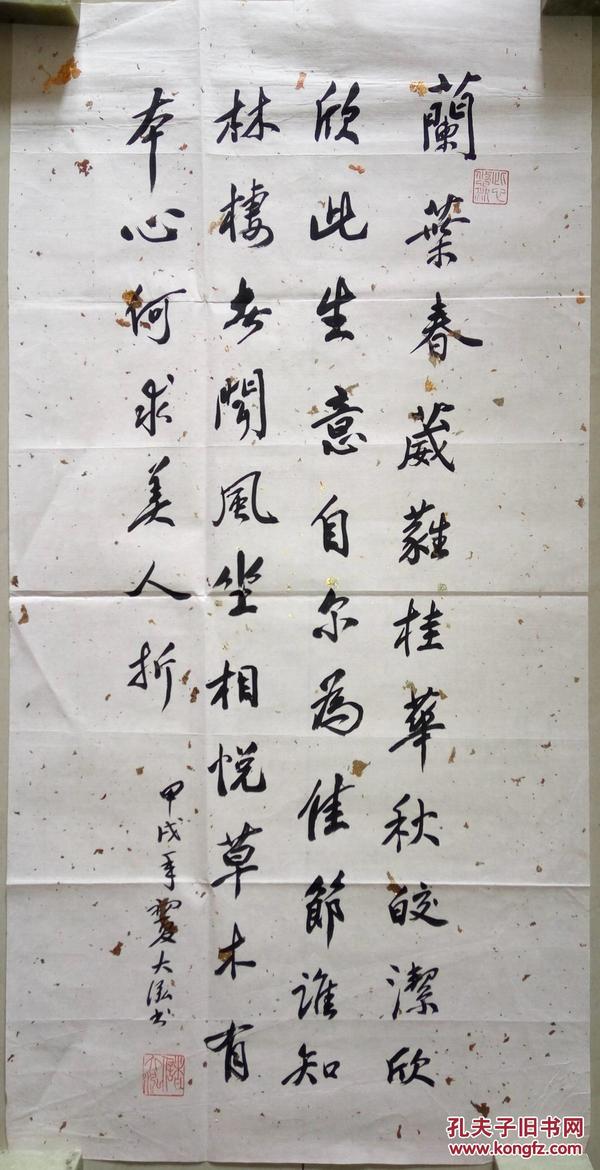 蘭葉春葳蕤桂華秋皎潔欣
欣此生意自尔為佳節誰知
林棲者聞風坐相悅草木有
本心何求美人折
甲戌年夏大泓书
孔夫子旧书网
www.kongfz.com